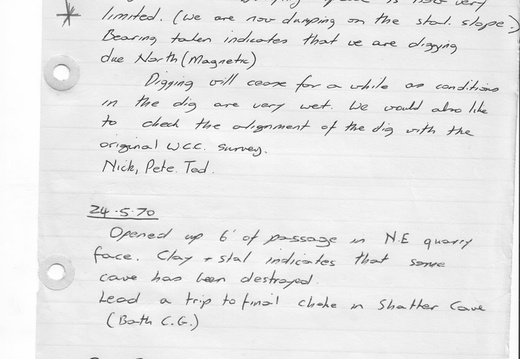 is now very
limited. (we are now dumping on the stal. slope.)
Bearing taken indicates that we are digging
due North (Magnetic)
Digging will cease for a while as conditions
in the dig are very wet. We would also like
to check the alignment of the dig with the
original WCC. survey.
Nick, Pete. Ted.
24.5.70
Opened up 6' of passage in N.E quarry
face. Clay + stal indicates that some
cave has been destroyed.
Lead a trip to final choke in Shatter Cave
(Bath C.G.)